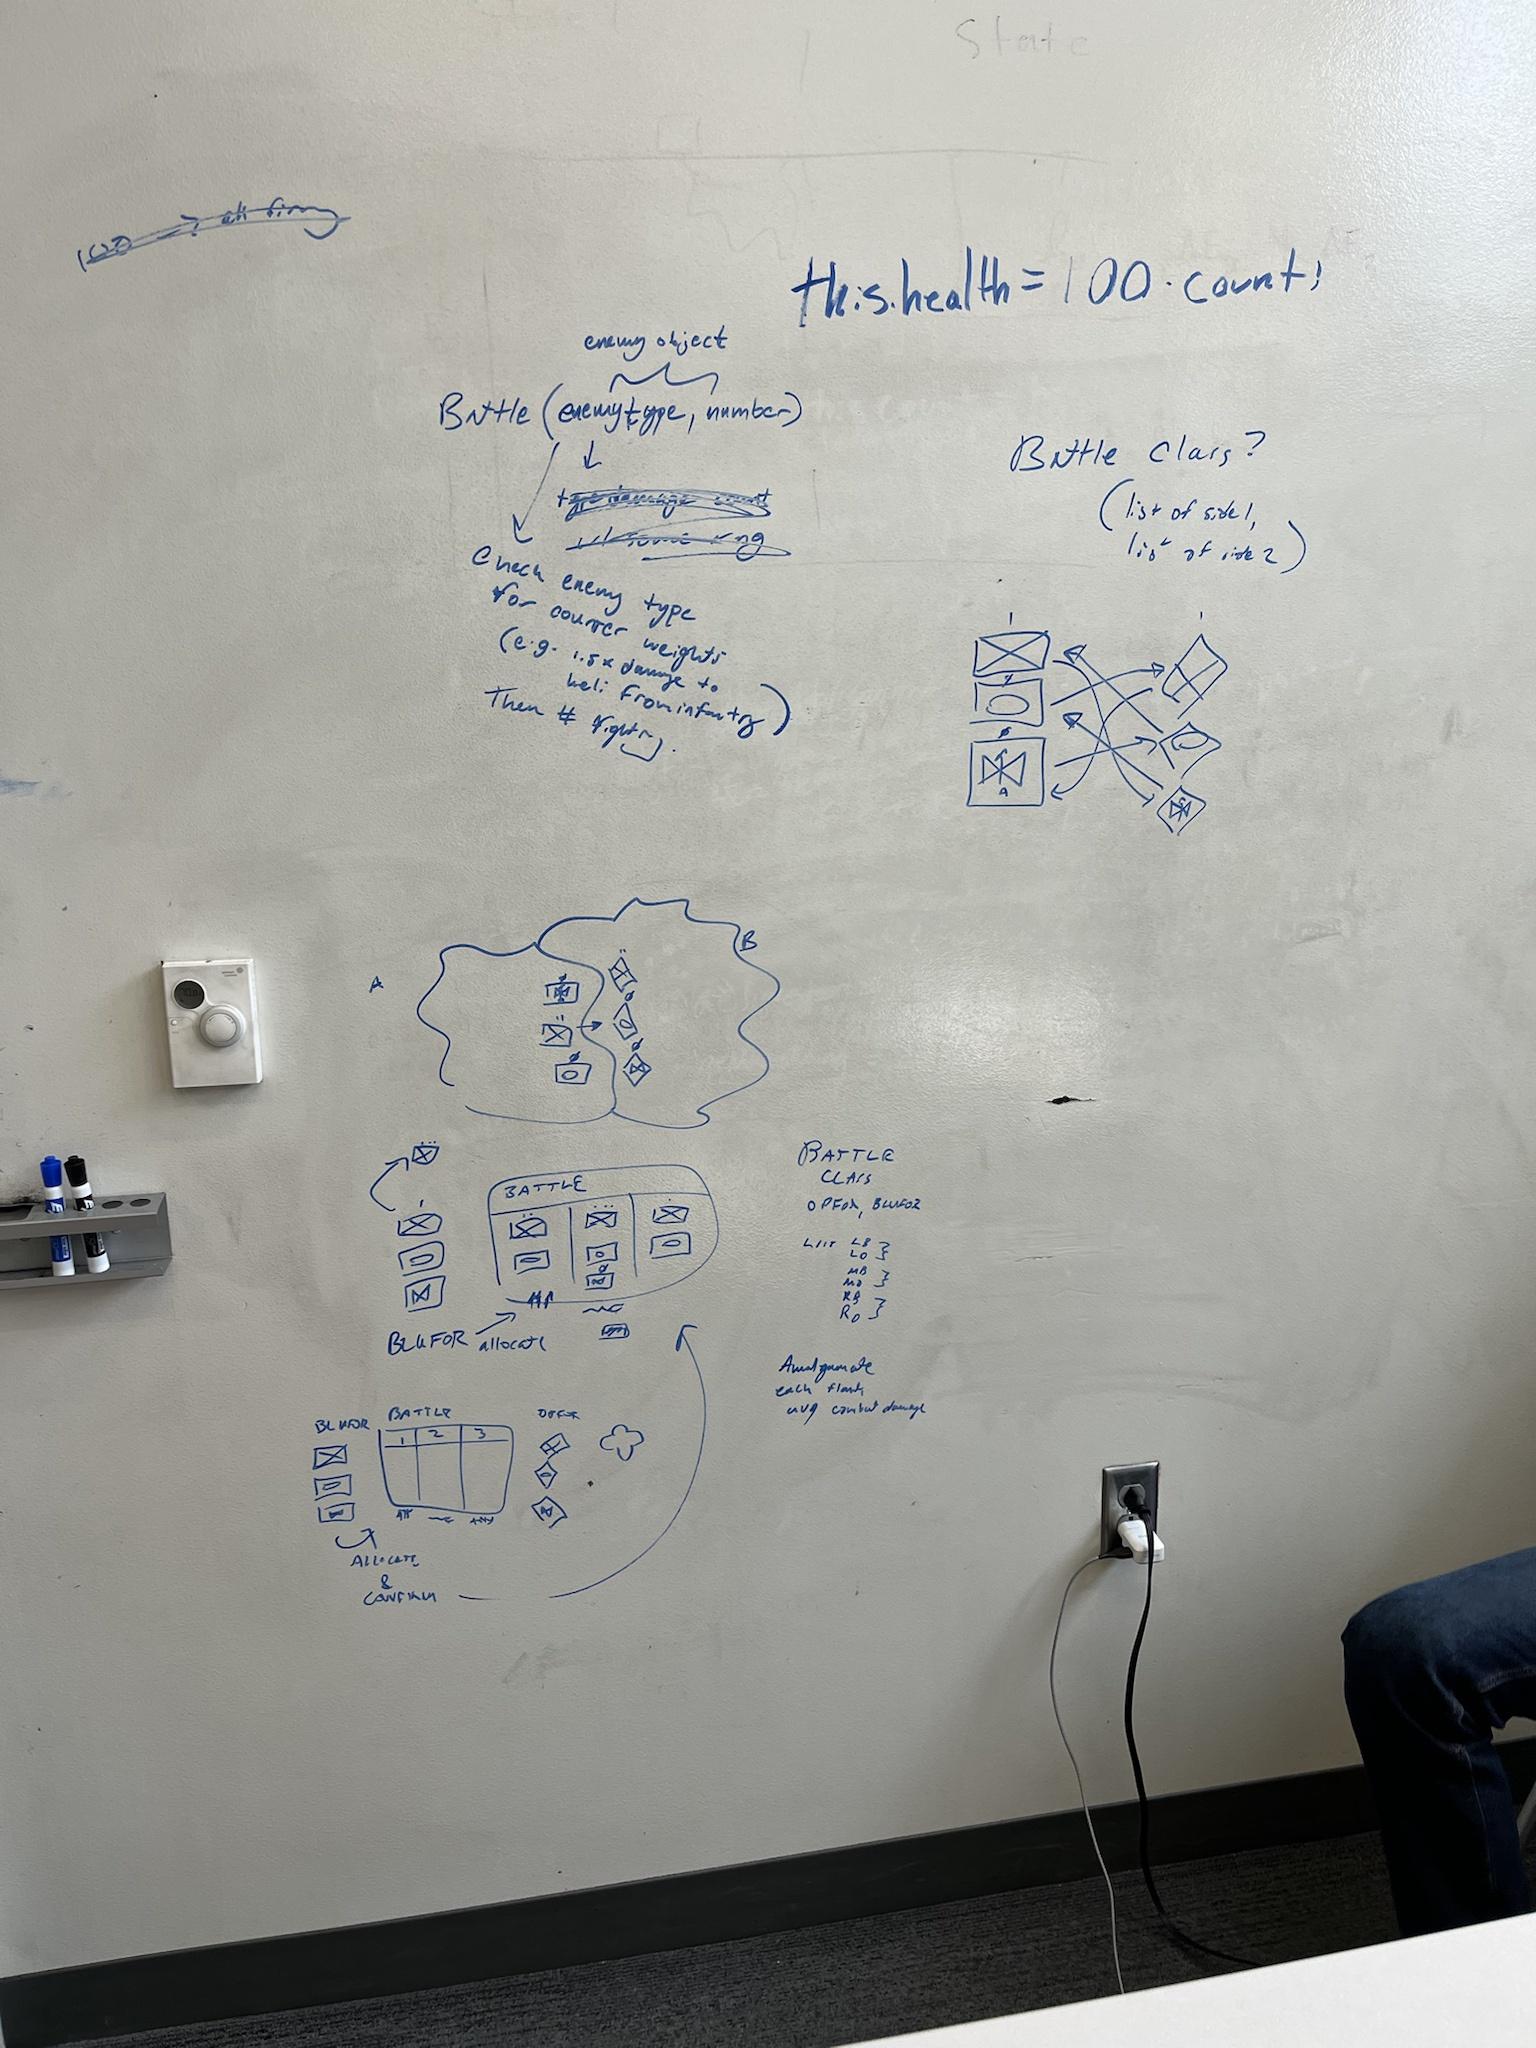 State
all firing
this.health = 100 · count;
enemy object
Battle (enemytype, number)
Check enemy type
for counter weights
(e.g. 1.5x damage to
heli from infantry)
Then # fights
Battle Class?
(list of side 1,
list of side 2)
A
B
BATTLE
BLUFOR allocate
BATTLE
CLASS
OPFOR, BLUFOR
LIST LB
LO
MB
MO
RB
RO
Amalgamate
each flank
avg combat damage
BLUFOR
BATTLE
OPFOR
1 2 3
ALLOCATE
&
CONFIRM